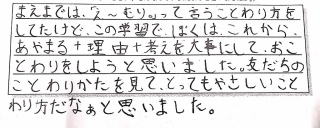 まえまでは、「え～もり。」って言うことわり方を
してたけど、この学習で、ぼくは、これから、
あやまる＋理由＋考えを大事にして、おこ
とわりをしようと思いました。友だちの
ことわりかたを見て、とってもやさしいこと
わり方だなぁと思いました。